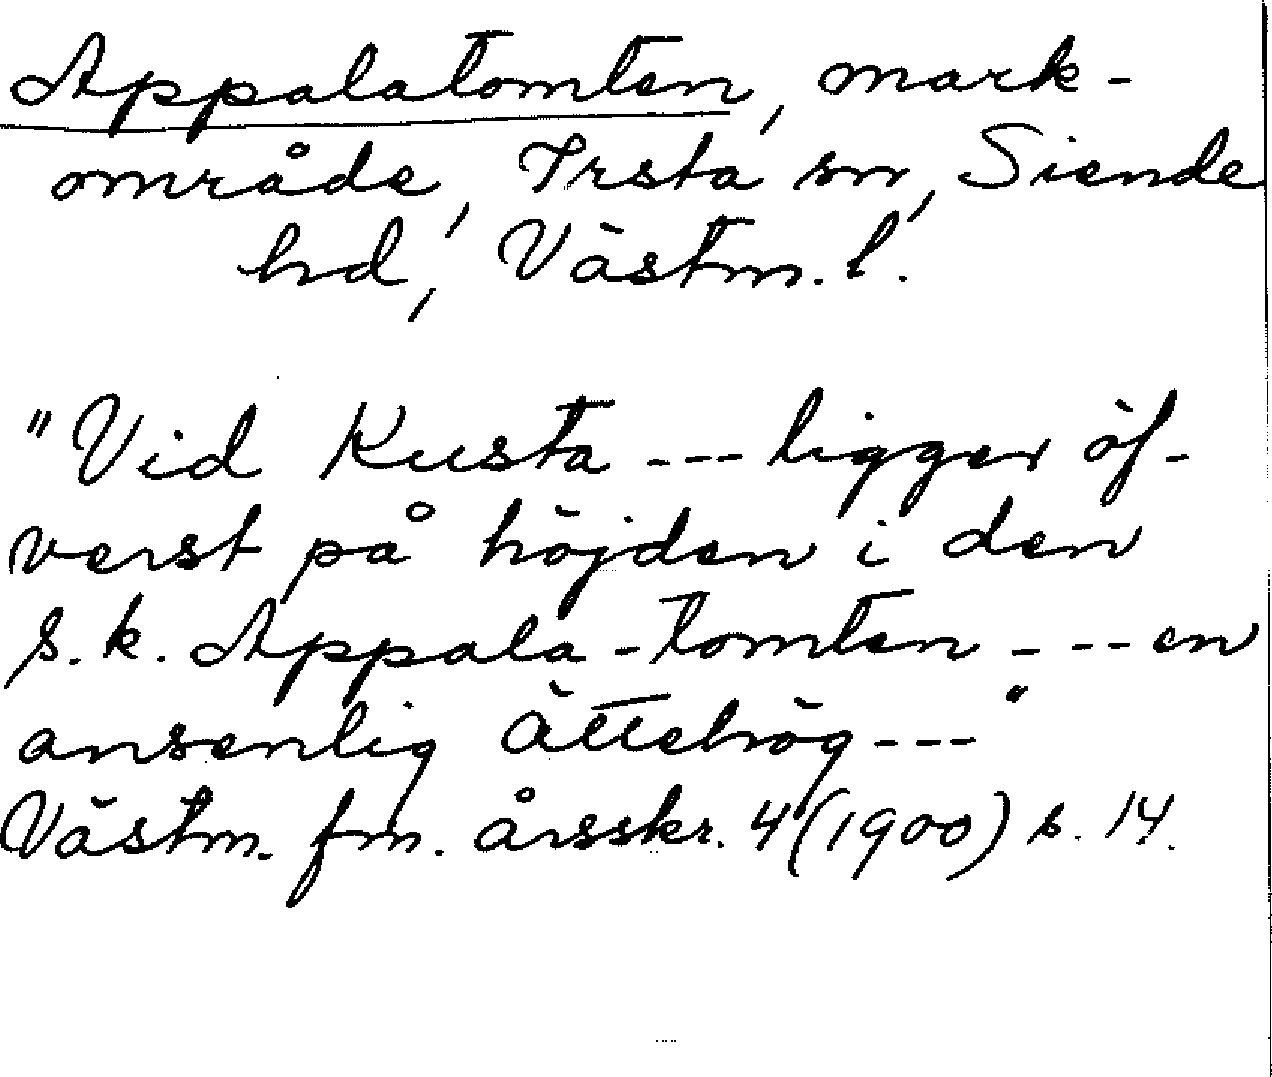 Appalatomten, mark-
område, Irsta sn, Siende
hd, Västm. l.
"Vid Kusta --- ligger öf-
verst på höjden i den
s.k. Appala-tomten --- en
ansenlig ättehög ---"
Västm. fm. årsskr. 4 (1900) s. 14.